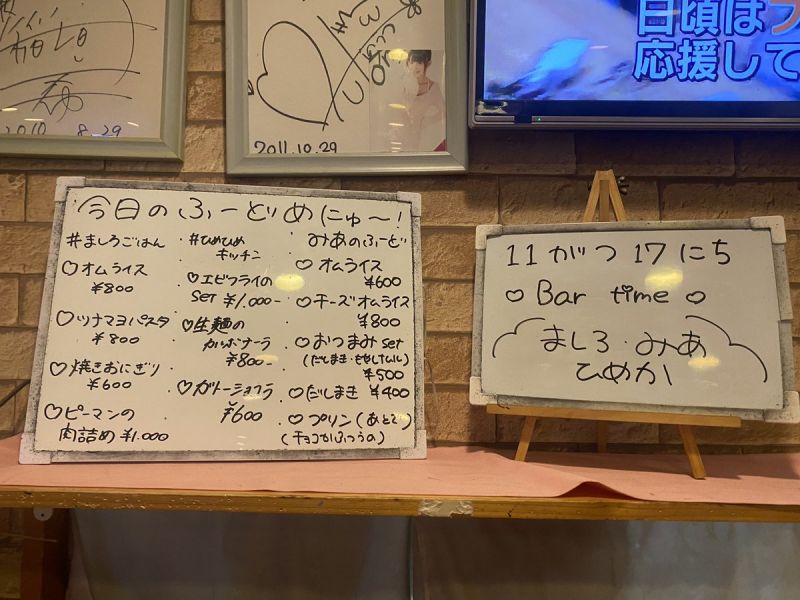 2010 8.29
2011.10.29
日頃は
応援して
今日のふーどめにゅ〜!
#ましろごはん
♡オムライス
¥800
♡ツナマヨパスタ
¥800
♡焼きおにぎり
¥600
♡ピーマンの
肉詰め ¥1.000
#ひめひめ
キッチン
♡エビフライの
set ¥1.000-
♡生麺の
カルボナーラ
¥800-
♡ガトーショコラ
¥600
みあのふーど
♡オムライス
¥600
♡チーズオムライス
¥800
♡おつまみset
¥500
♡だしまき ¥400
♡プリン(あと2)
(チョコかふつうの)
11がつ17にち
♡Bar time♡
ましろ・みあ
ひめか